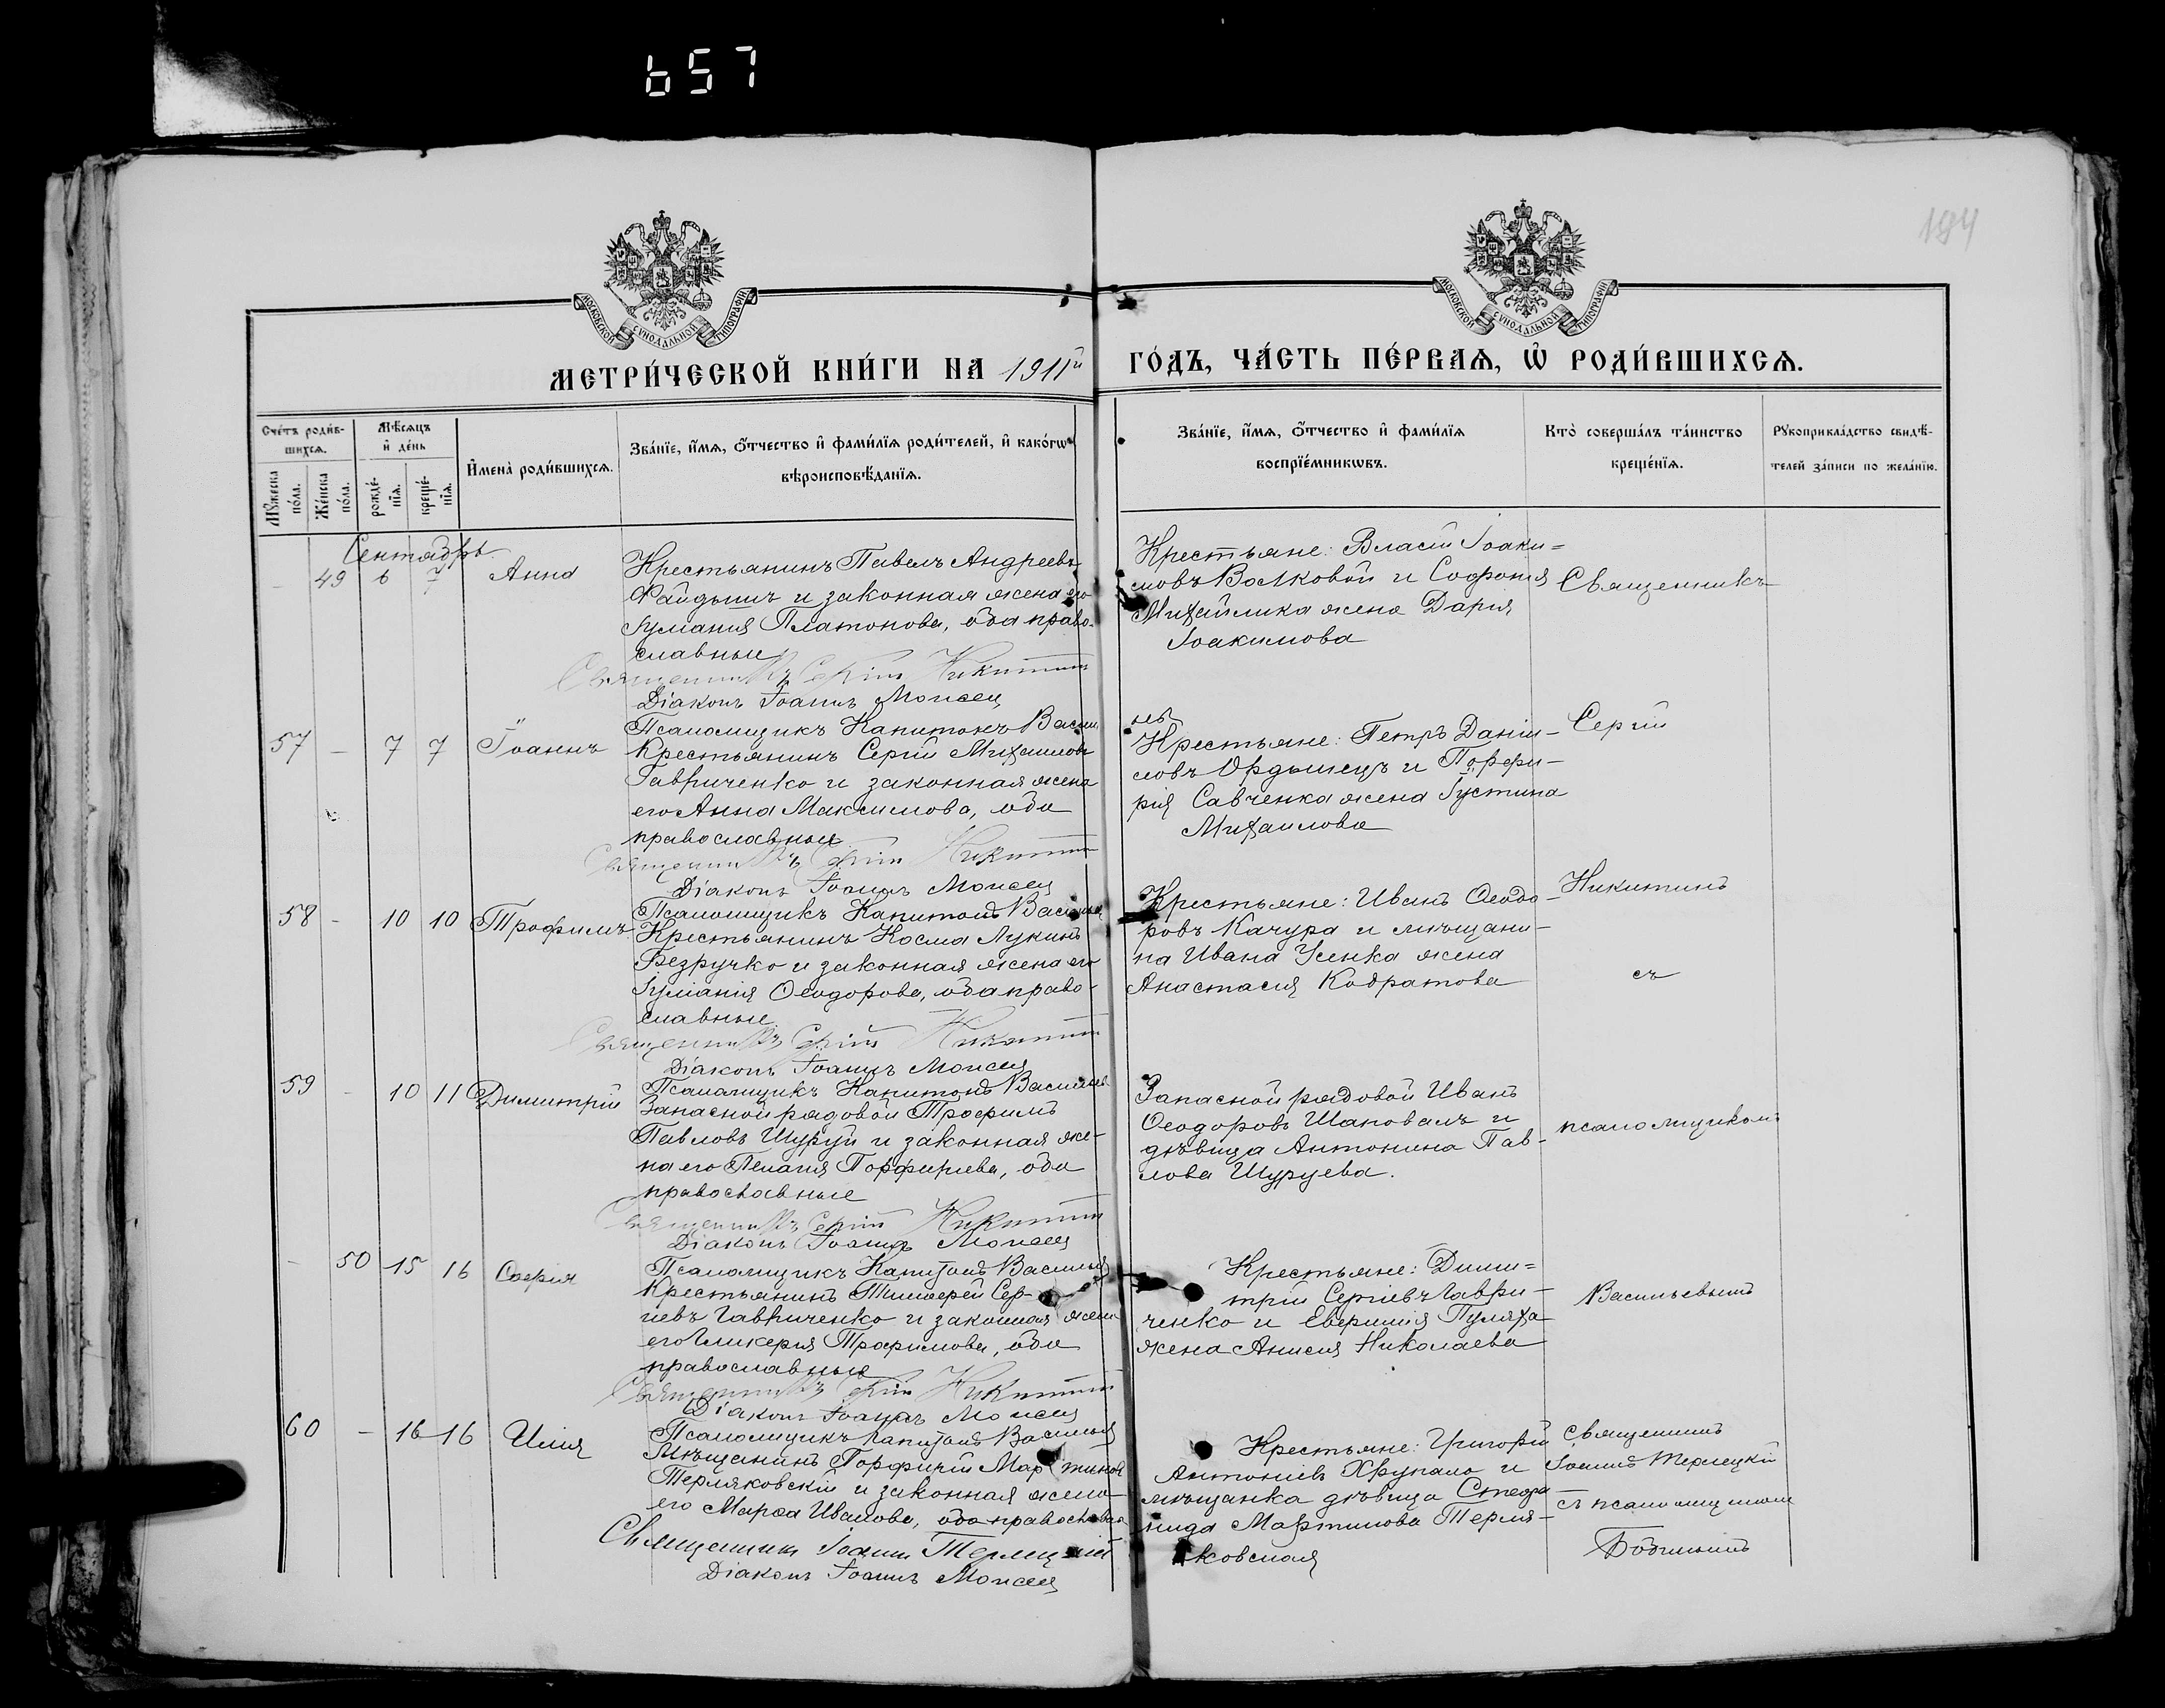 657
184
МОСКОВСКОЙ СѴНОДАЛЬНОЙ ТИПОГРАФІИ
МОСКОВСКОЙ СѴНОДАЛЬНОЙ ТИПОГРАФІИ
МЕТРИ́ЧЕСКОЙ КНИ́ГИ НА 1911й ГО́ДЪ, ЧА́СТЬ ПЕ́РВАѦ, Ѡ҆ РОДИ́ВШИХСѦ.
Сче́тъ роди́в-
шихсѧ.
Мꙋ́жеска по́ла.
Же́нска по́ла.
Мѣ́сѧцъ
и҆ де́нь
рожде́-
нїѧ.
креще́-
нїѧ.
И҆мена̀ роди́вшихсѧ.
Зва́нїе, и҆́мѧ, ѻ҆́тчество и҆ фами́лїѧ роди́телей, и҆ како́гѡ
вѣроисповѣ́данїѧ.
Зва́нїе, и҆́мѧ, ѻ҆́тчество и҆ фами́лїѧ
воспрїе́мникѡвъ.
Кто̀ соверша́лъ та́инство
креще́нїѧ.
Рꙋкоприкла́дство свидѣ́-
телей за́писи по жела́нїю.
Сентябрь
- 49 6 7 Анна
Крестьянинъ Павелъ Андреевъ
Файдышъ и законная жена его
Іуліанія Платонова, оба право-
славные
Священникъ Сергій Никитинъ
Діаконъ Іоаннъ Моисея
Псаломщикъ Капитонъ Васильевъ
Крестьяне: Власій Іоаки=
мовъ Волковой и Софонія
Михайлика жена Дарія
Іоакимова
Священникъ
57 - 7 7 Іоаннъ
Крестьянинъ Сергій Михаиловъ
Гавриченко и законная жена
его Анна Максимова, оба
православные
Священникъ Сергій Никитинъ
Діаконъ Іоаннъ Моисея
Псаломщикъ Капитонъ Васильевъ
Крестьяне: Петръ Даніи-
ловъ Ордынецъ и Порфи-
рія Савченка жена Іустина
Михаилова
Сергій
58 - 10 10 Трофимъ
Крестьянинъ Косма Лукинъ
Безручко и законная жена его
Іуліанія Ѳеодорова, оба право-
славные
Священникъ Сергій Никитинъ
Діаконъ Іоаннъ Моисея
Псаломщикъ Капитонъ Васильевъ
Крестьяне: Иванъ Ѳеодо-
ровъ Качура и мѣщани-
на Ивана Усенка жена
Анастасія Кодратова
Никитинъ
съ
59 - 10 11 Димитрій
Запасной рядовой Трофимъ
Павловъ Шуруй и законная же-
на его Пелагія Порфиріева, оба
православные
Священникъ Сергій Никитинъ
Діаконъ Іоаннъ Моисея
Псаломщикъ Капитонъ Васильевъ
Запасной рядовой Иванъ
Ѳеодоровъ Шаповалъ и
дѣвица Антонина Пав-
лова Шуруева.
псаломщикомъ
- 50 15 16 Софія
Крестьянинъ Тимоѳей Сер-
гіевъ Гавриченко и законная жена
его Гликерія Трофимова, оба
православные
Священникъ Сергій Никитинъ
Діаконъ Іоаннъ Моисея
Псаломщикъ Капитонъ Васильевъ
Крестьяне: Дими=
трій Сергіевъ Гаври-
ченко и Евфимія Пуляха
жена Анисія Николаева
Васильевымъ
60 - 16 16 Илія
Мѣщанинъ Порфирій Мартиновъ
Терляковскій и законная жена
его Марѳа Иванова, оба православные
Священникъ Іоаннъ Терлецкій
Діаконъ Іоаннъ Моисея
Крестьяне: Григорій
Антоніевъ Хрупало и
мѣщанка дѣвица Стефа-
нида Мартинова Терля-
ковская
Священникъ
Іоаннъ Терлецкій
съ псаломщикомъ